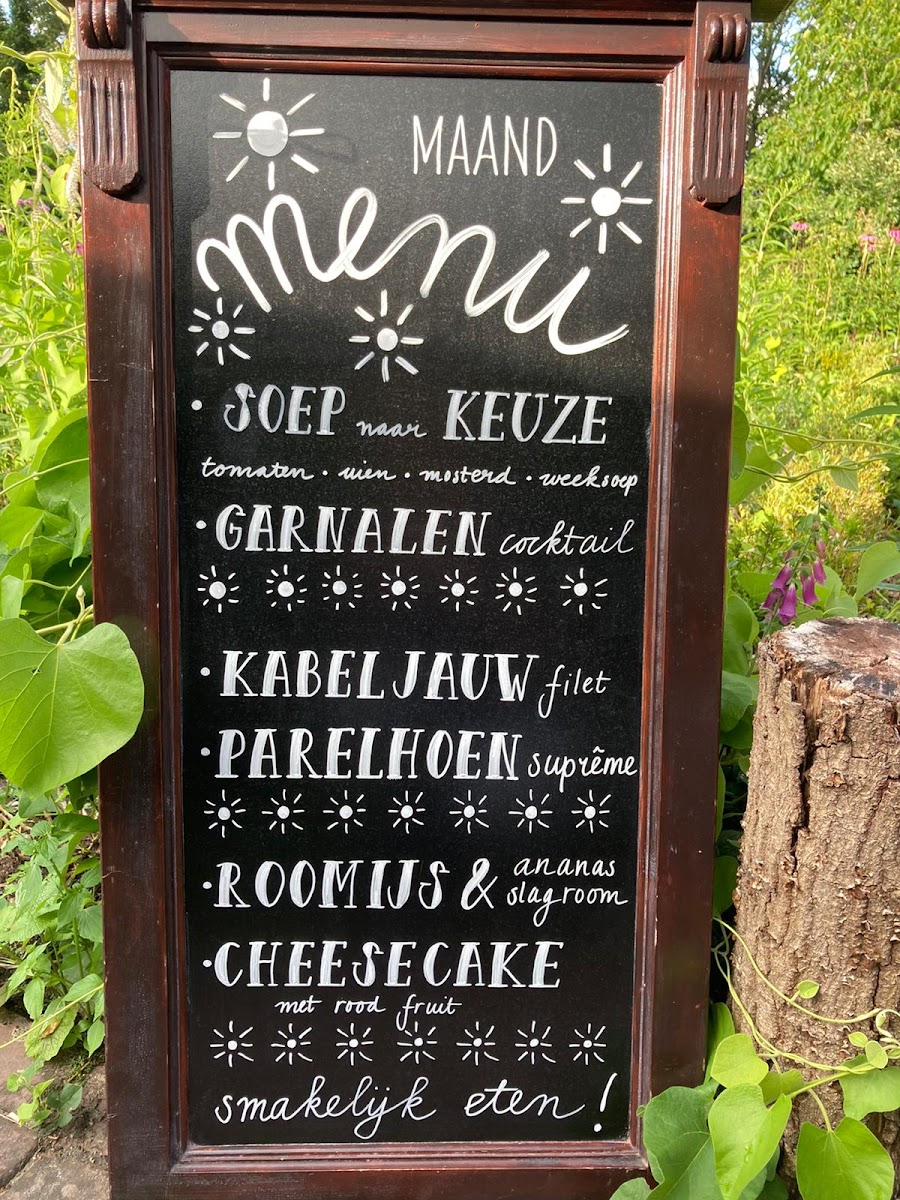 MAAND
menu
• SOEP naar KEUZE
tomaten • uien • mosterd • weeksoep
• GARNALEN cocktail
• KABELJAUW filet
• PARELHOEN suprême
• ROOMIJS & ananas
slagroom
• CHEESECAKE
met rood fruit
smakelijk eten!